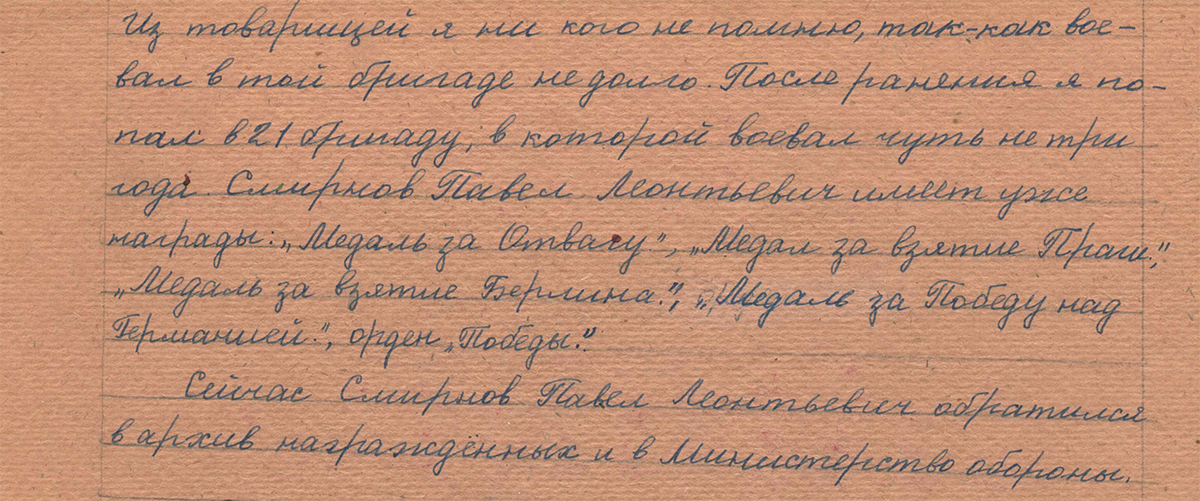 Из товарищей я ни кого не помню, так-как вое-
вал в той бригаде не долго. После ранения я по-
пал в 21 бригаду, в которой воевал чуть не три
года. Смирнов Павел Леонтьевич имеет уже
награды: „Медаль за Отвагу", „Медал за взятие Праги",
„Медаль за взятие Берлина", „Медаль за Победу над
Германией", орден „Победы".
Сейчас Смирнов Павел Леонтьевич обратился
в архив награждённых и в Министерство обороны.